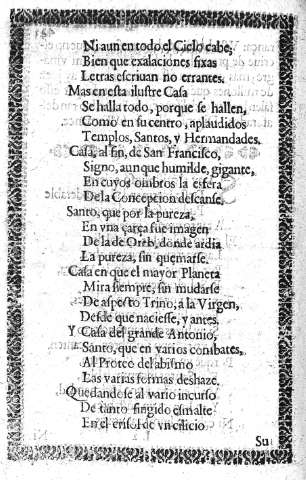 Ni aun en todo el Cielo cabe,
Bien que exalaciones fixas
Letras escriuan no errantes.
Mas en esta ilustre Casa
Se halla todo, porque se hallen,
Como en su centro, aplaudidos
Templos, Santos, y Hermandades.
Casa, al fin, de San Francisco,
Signo, aunque humilde, gigante,
En cuyos ombros la esfera
De la Concepcion descanse.
Santo, que por la pureza,
En vna çarça fue imagen
De la de Oreb, donde ardia
La pureza, sin quemarse.
Casa en que el mayor Planeta
Mira siempre, sin mudarse
De aspecto Trino, a la Virgen,
Desde que naciesse, y antes.
Y Casa del grande Antonio,
Santo, que en varios combates,
Al Proteo del abismo
Las varias formas deshaze.
Quedandose al vario incurso
De tanto fingido esmalte
En el crisol de vn cilicio
Su